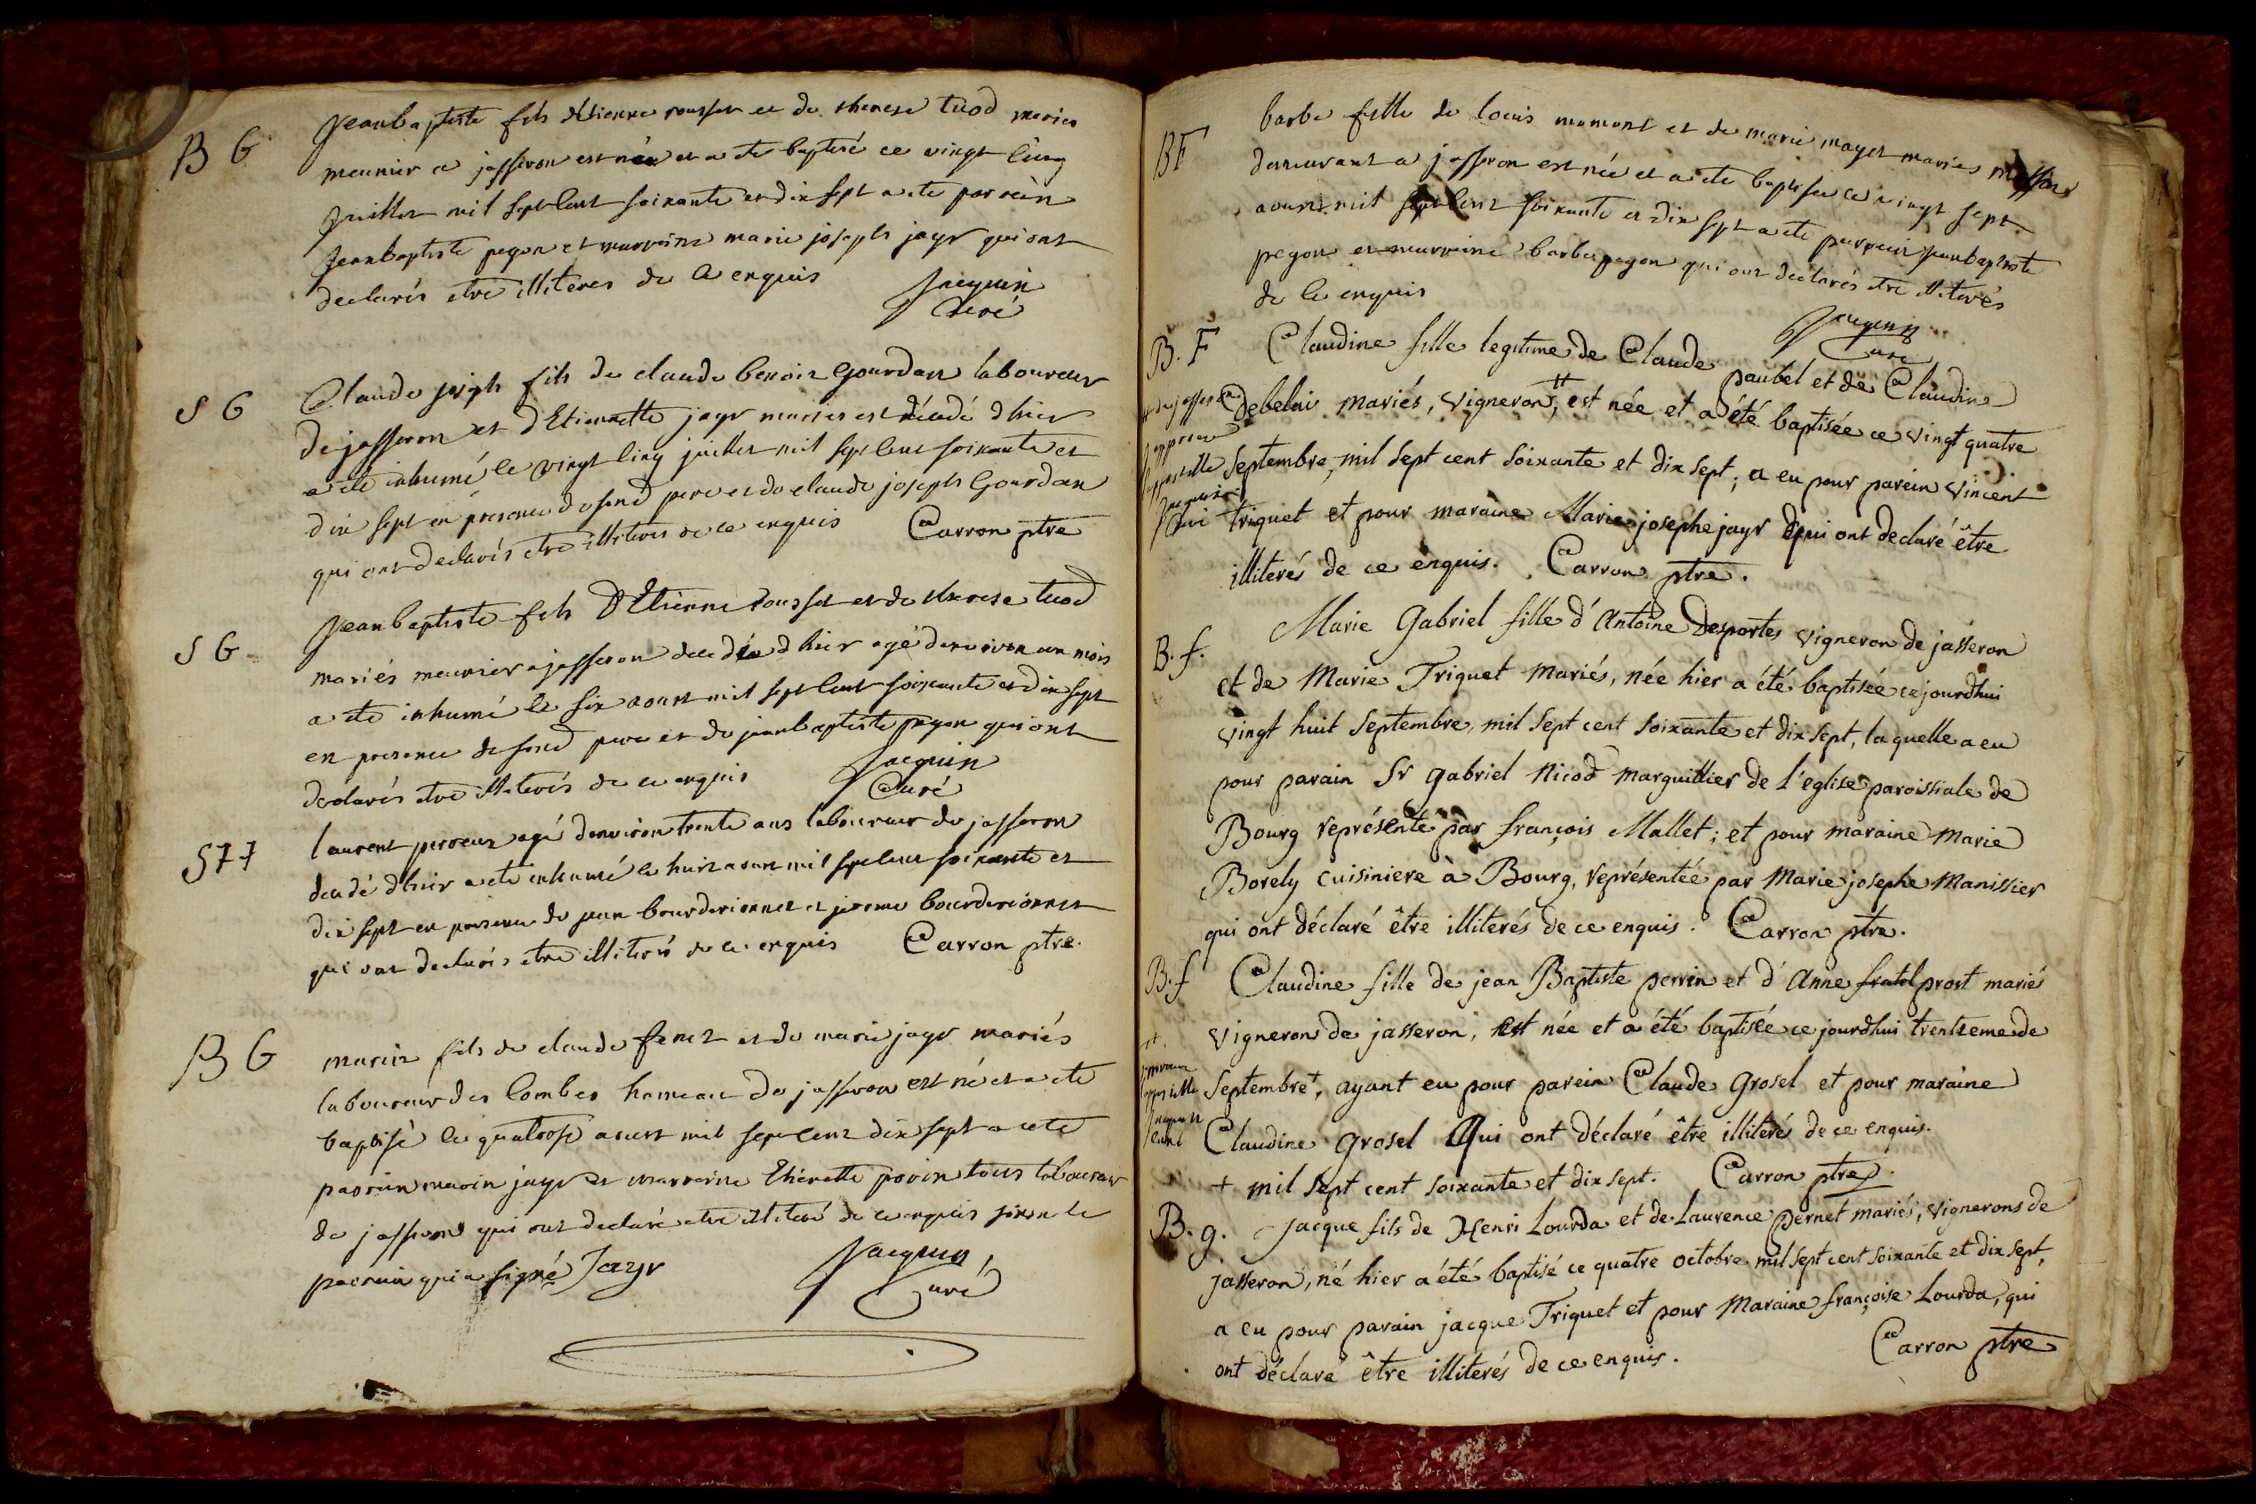 B G
Jean baptiste fils d'Etienne rousset et de therese tuod mariés
meunier a jasseron est né et a ete baptisé ce vingt cinq
juillet mil sept cent soixante et dix sept a ete parrein
Jean baptiste pegon et marraine marie joseph jayr qui ont
declarés etre illiteres de ce enquis Jacquin
Curé
S G
Claude joseph fils de claude benoit Gourdan laboureur
de jasseron et d'Etiennette jayr mariés est décédé d'hier
a ete inhumé le vingt cinq juillet mil sept cent soixante et
dix sept en presence dosond pere et de claude joseph Gourdan
qui ont declarés etre illiteres de ce enquis Carron ptre
S G
Jean baptiste fils D'Etienne rousset et de therese tuod
mariés meunier a jasseron decedé d'hier agé denviron un mois
a ete inhumé le six aoust mil sept cent soixante et dix sept
en presence de sond pere et de jean baptiste pegon qui ont
declarés etre illiterés de ce enquis Jacquin
Curé
S 77
laurent perreux agé denviron trente ans laboureur de jasseron
decedé d'hier a ete inhumé le huit aoust mil sept cent soixante et
dix sept en presence de jean bourderionnet et jerome bourderionnet
qui ont declarés etre illiterés de ce enquis Carron ptre.
B G
marin fils de claude feret et de marie jayr mariés
laboureur des Combes hameau de jasseron est né et a ete
baptisé le quatorse aoust mil sept cent dix sept a ete
parrain marin jayr et marraine Etienette tous laboureur
de jasseron qui ont declaré etre illiteré de ce enquis sinon le
parrain qui a signé Jayr Jacquin
Curé
BF
barbe fille de louis momont et de marie mayet mariés
demeurant a jasseron est née et a ete baptisée ce vingt sept
aoust mil sept cent soixante et dix sept a ete parrein jean baptiste
pegon et marraine barbe pegon qui ont declarés etre illiterés
de ce enquis
Jacquin
Curé
B. F
Claudine fille legitime de Claude paubel et de Claudine
Debelai mariés, vigneron, # est née et a été baptisée ce vingt quatre
# de jasseron
j'approuve
l'appostille
Jacquin
septembre, mil sept cent soixante et dix sept; a eu pour parein vincent
triquet et pour maraine Marie josephe jayr qui ont declaré être
illiterés de ce enquis. Carron ptre.
B. f.
Marie Gabriel fille d'Antoine Desportes vigneron de jasseron
et de Marie Triquet mariés, née hier a été baptisée cejourdhui
vingt huit septembre, mil sept cent soixante et dix sept, laquelle a eu
pour parain Sr gabriel Nicod marguillier de l'eglise paroissiale de
Bourg représenté par françois Mallet; et pour maraine Marie
Borely cuisiniere à Bourg, représentée par Marie josephe Manissier
qui ont déclaré être illiterés de ce enquis. Carron ptre.
B. f
Claudine fille de jean Baptiste perrin et d'Anne fratel prost mariés
vignerons de jasseron, est née et a été baptisée ce jourdhui trentieme de
septembre +, ayant eu pour parein Claude Grosel et pour maraine
Claudine Grosel Qui ont déclaré être illiterés de ce enquis.
+ mil sept cent soixante et dix sept. Carron ptre.
+
j'approuve
l'appostille
Jacquin
Curé
B. g.
Jacque fils de Henri Lourda et de Laurence Pernet mariés, vignerons de
jasseron, né hier a été baptisé ce quatre octobre mil sept cent soixante et dix sept,
a eu pour parain jacque Triquet et pour Maraine françoise Lourda, qui
ont déclaré être illiterés de ce enquis. Carron ptre